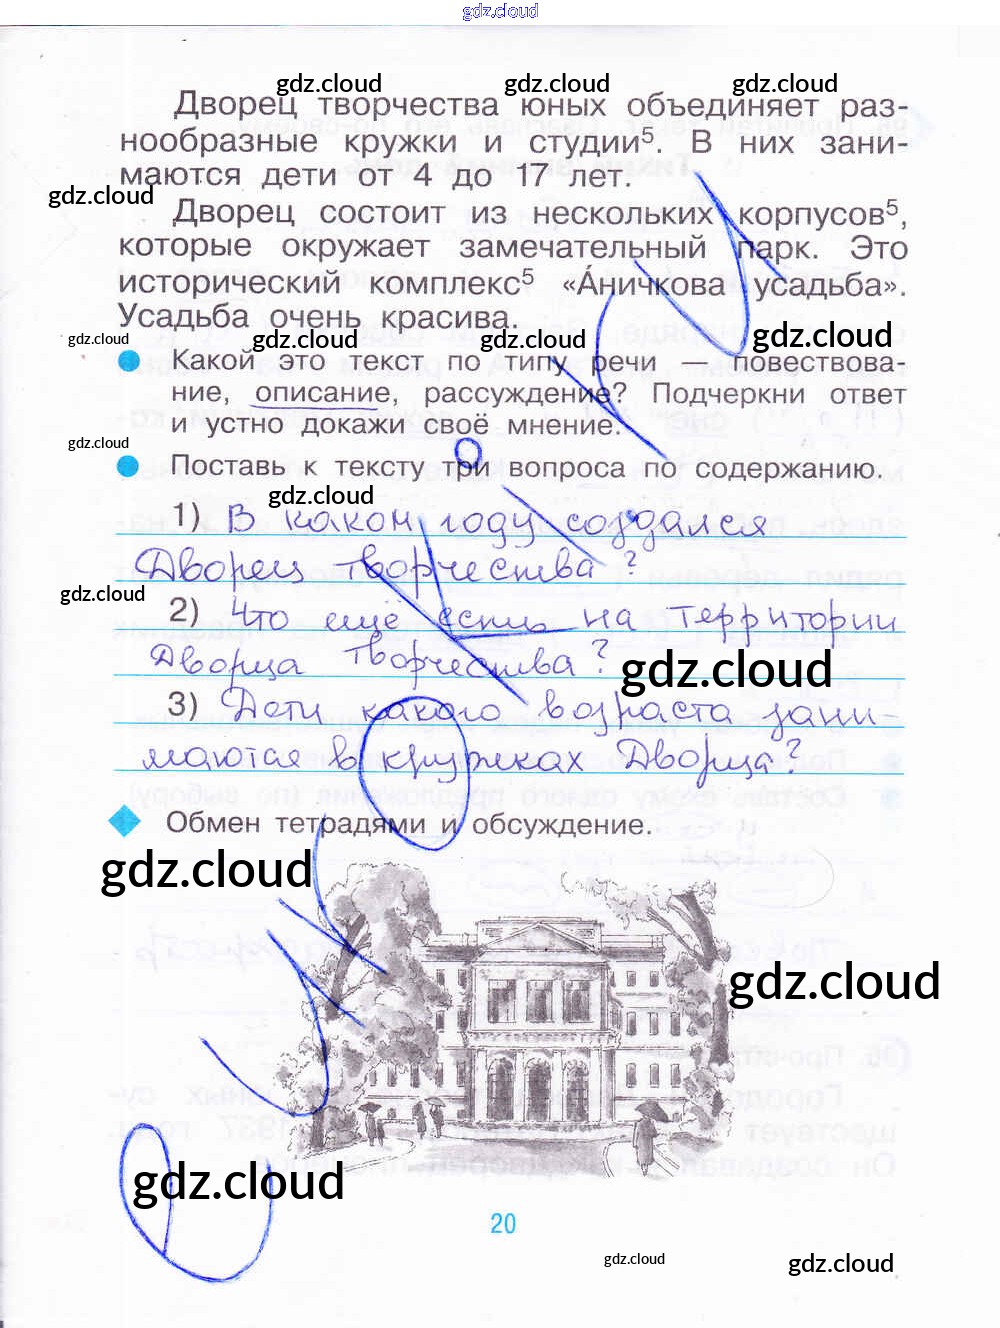 gdz.cloud
gdz.cloud gdz.cloud gdz.cloud
Дворец творчества юных объединяет раз-
нообразные кружки и студии⁵. В них зани-
маются дети от 4 до 17 лет.
gdz.cloud
Дворец состоит из нескольких корпусов⁵,
которые окружает замечательный парк. Это
исторический комплекс⁵ «А́ничкова усадьба».
Усадьба очень красива.
gdz.cloud gdz.cloud gdz.cloud gdz.cloud
Какой это текст по типу речи — повествова-
ние, описание, рассуждение? Подчеркни ответ
и устно докажи своё мнение.
gdz.cloud
Поставь к тексту три вопроса по содержанию.
gdz.cloud
1) В каком году создался
Дворец творчества?
gdz.cloud
2) Что ещё есть на территории
Дворца творчества?
gdz.cloud
3) Дети какого возраста зани-
маются в кружках Дворца?
Обмен тетрадями и обсуждение.
gdz.cloud
gdz.cloud
gdz.cloud
20
gdz.cloud gdz.cloud